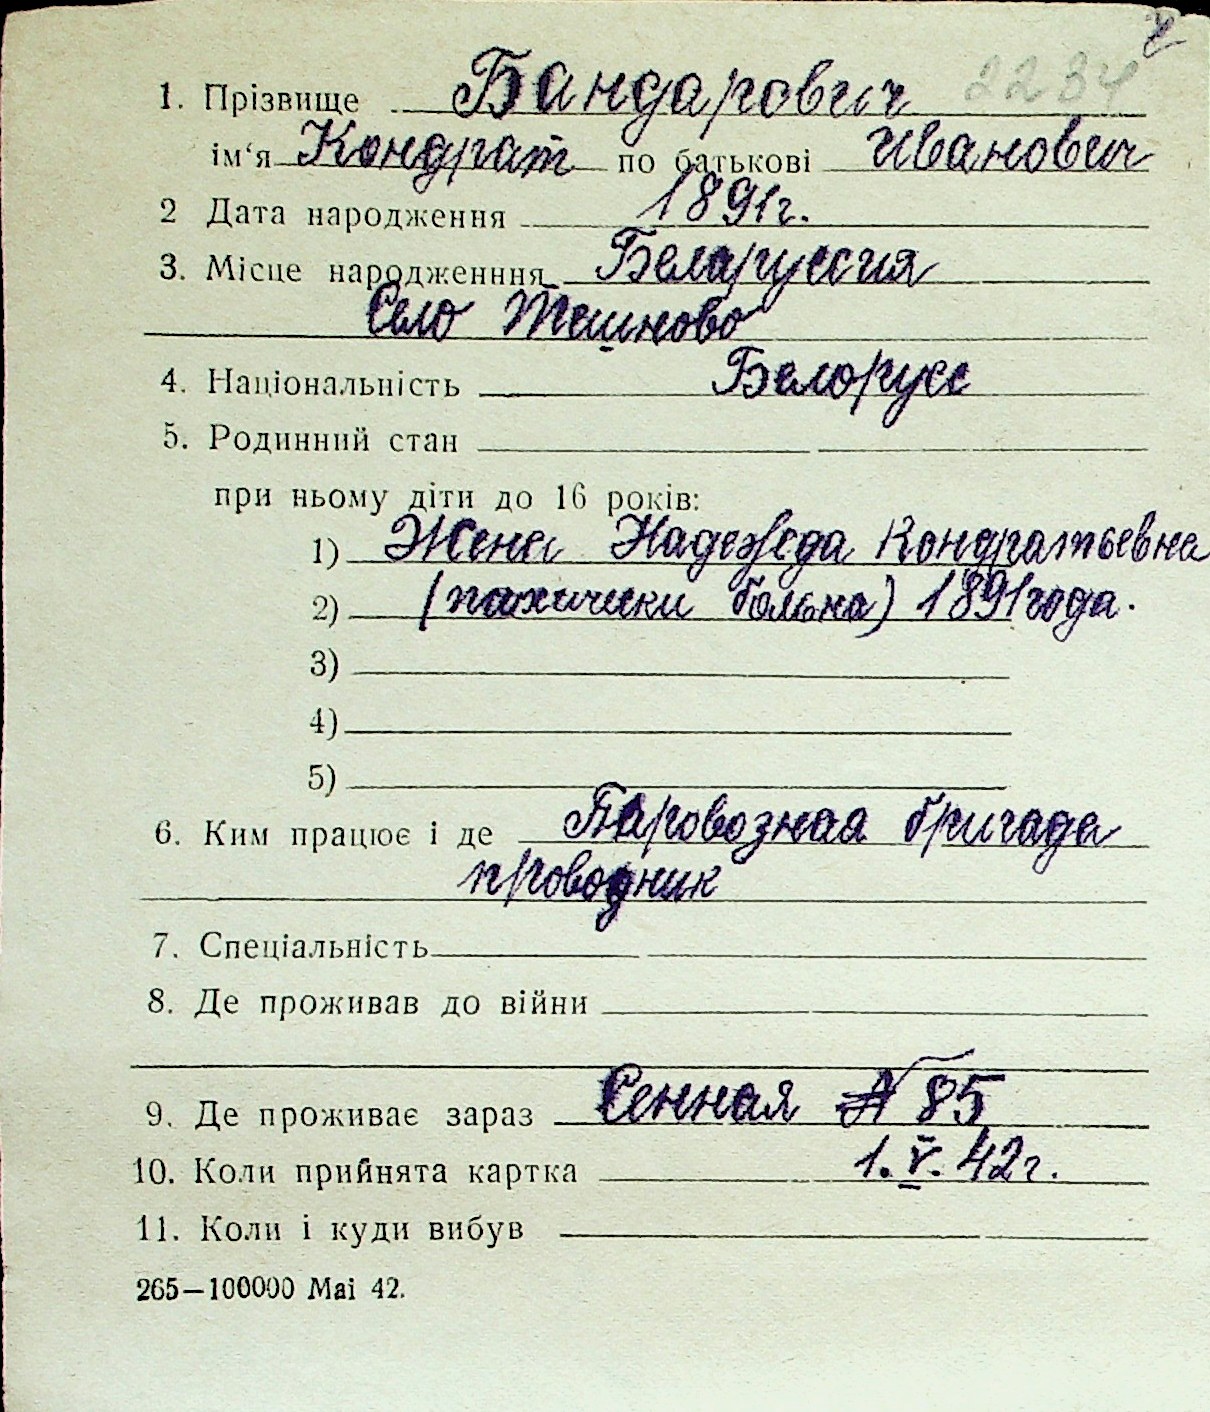 1. Прізвище Бандарович 2234
ім‘я Кондрат по батькові Иванович
2 Дата народження 1891г.
3. Місце народженння Беларуссия
Село Тешново
4. Національність Белорусс
5. Родинний стан
при ньому діти до 16 років:
1) Жена Надежда Кондратьевна
2) (пахически больна) 1891 года.
3)
4)
5)
6. Ким працює і де Паровозная бригада
проводник
7. Спеціальність
8. Де проживав до війни
9. Де проживає зараз Сенная № 85
10. Коли прийнята картка 1.V.42г.
11. Коли і куди вибув
265—100000 Mai 42.